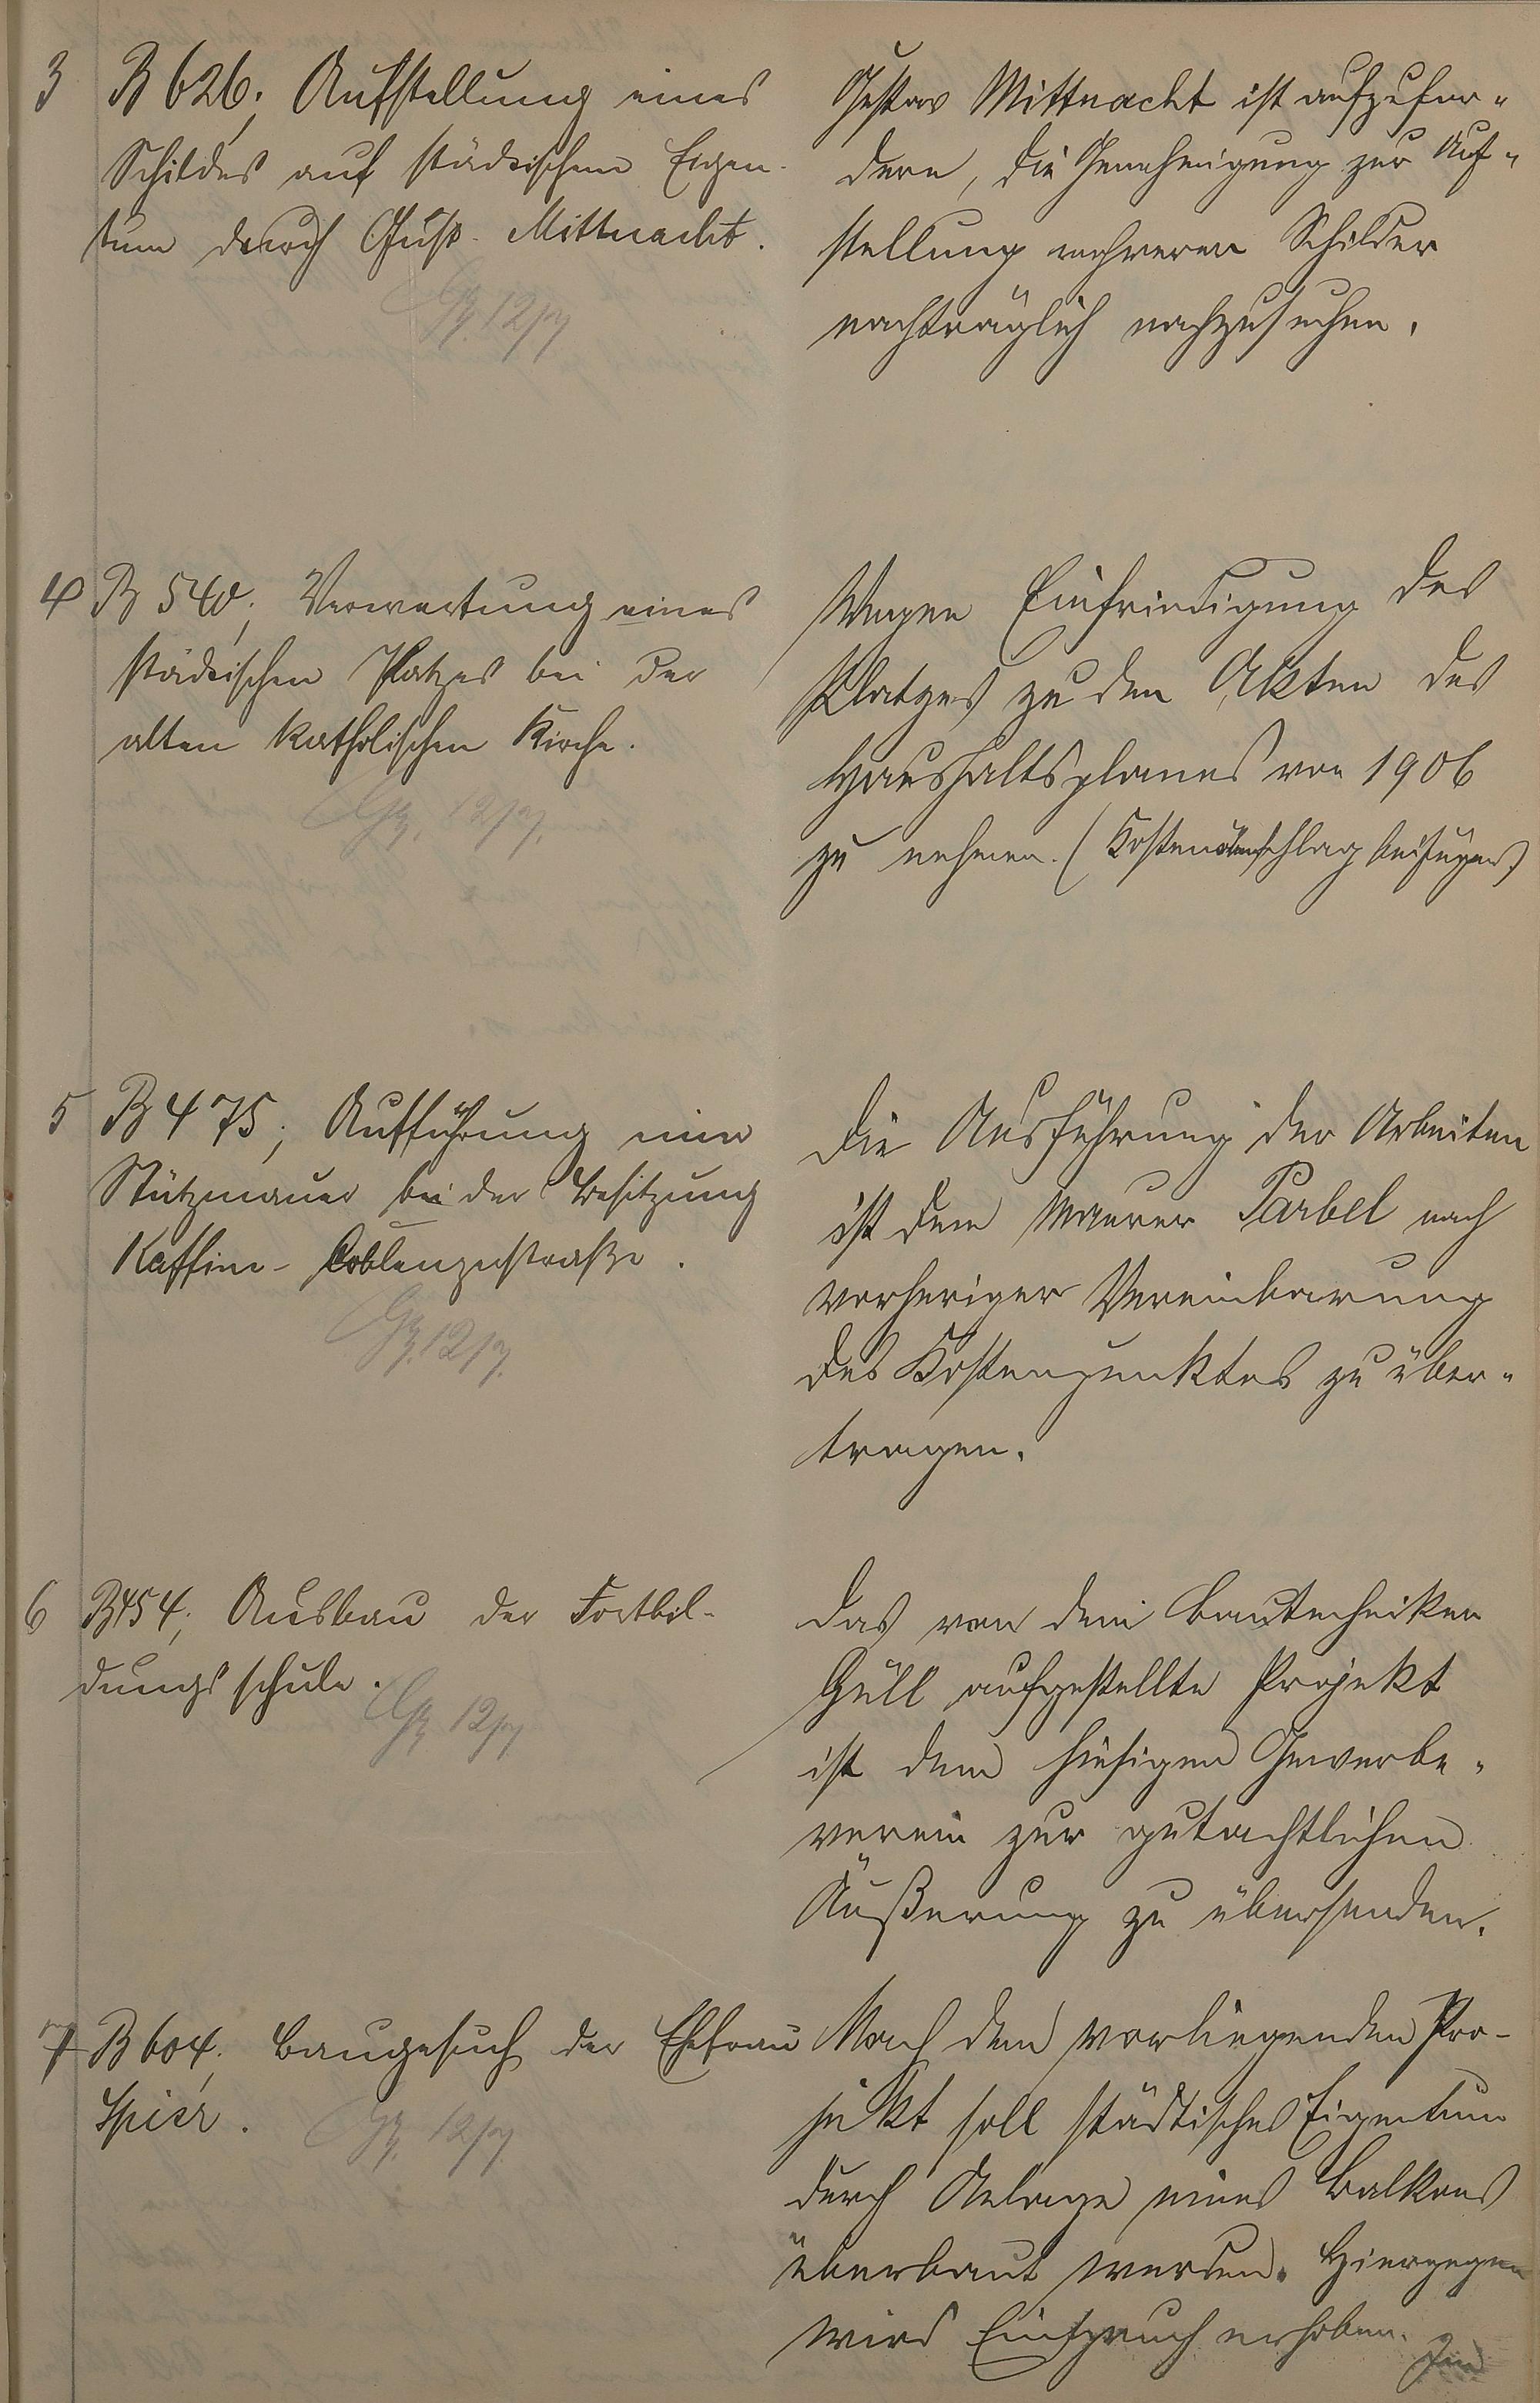 3 B 626; Aufstellung eines
Schildes auf städtischem Eigen-
tum durch Gust. Mittnacht.
Gustav Mittnacht ist aufzufor-
dern, die Genehmigung zur Auf-
stellung mehrerer Schilder
nachträglich nachzusuchen.
4 B 540; Verwertung eines
städtischen Platzes bei der
alten katholischen Kirche.
Wegen Einfriedigung des
Platzes zu den Akten des
Haushaltsplanes von 1906
zu nehmen. (Kostenanschlag beifügen)
5 B 475; Aufführung einer
Stützmauer bei der Besitzung
Kaffine- Coblenzerstraße.
Die Ausführung der Arbeiten
ist dem Maurer Parbel nach
vorheriger Vereinbarung
des Kostenpunktes zu über-
tragen.
6 B 454; Ausbau der Fortbil-
dungsschule.
Das von dem Bautechniker
Güll aufgestellte Projekt
ist dem hiesigen Gewerbe-
verein zur gutachtlichen
Äußerung zu übersenden.
7 B 604; Baugesuch der Ehefrau
Spier.
Nach dem vorliegenden Pro-
jekt soll städtisches Eigentum
durch Anlage eines Balkons
überbaut werden. Hiergegen
wird Einspruch erhoben.